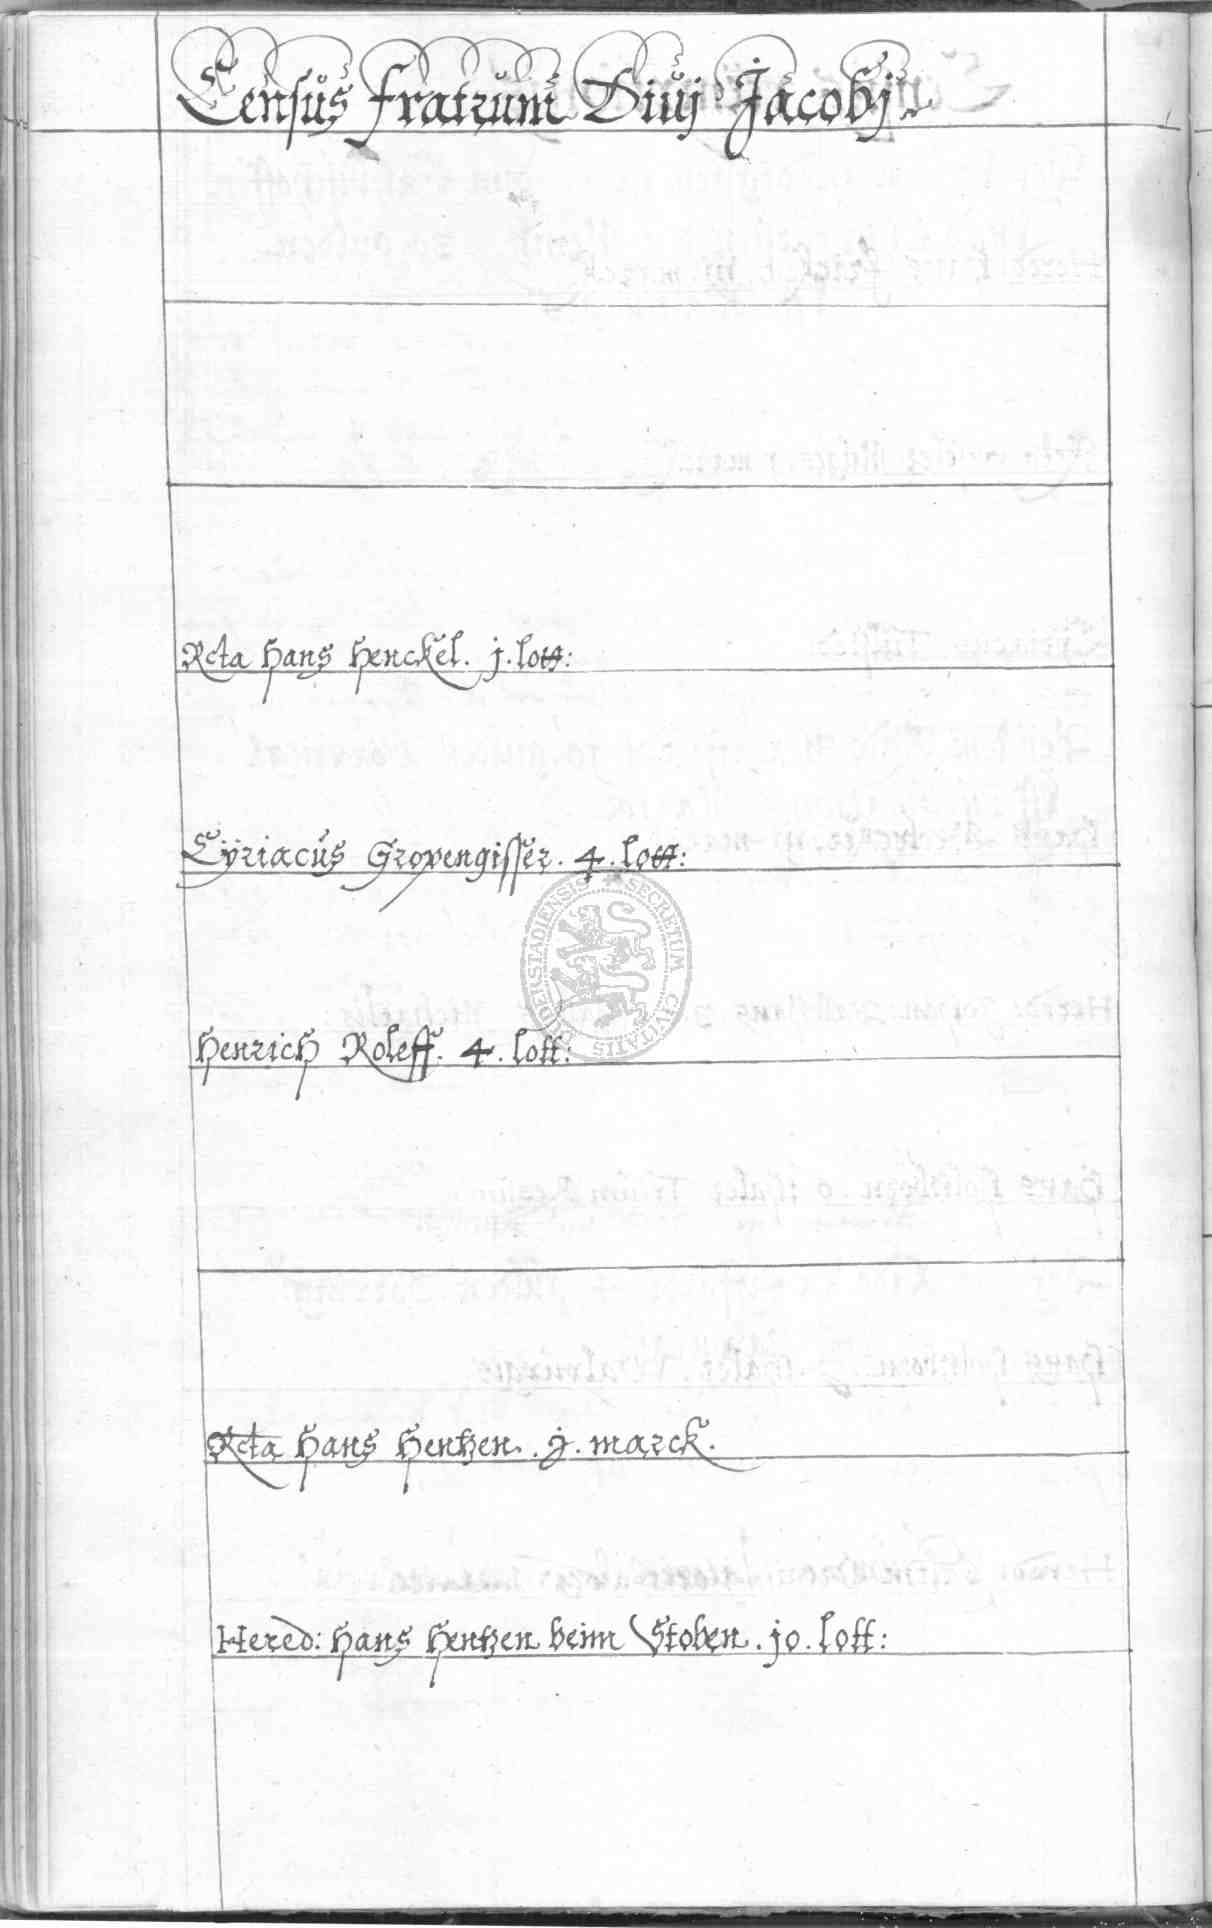 Census fratrum Diuj Jacobj.
Rcta Hans Henckel. j. lott:
Cÿriacus Gropengisser. 4. lott:
SECRETUM CIVITATIS DUDERSTADIENSIS
Henrich Roleff. 4. lott:
Rcta Hans Hentzen. j. marck.
Hered: Hans Hentzen beim Stoben. jo. lott: